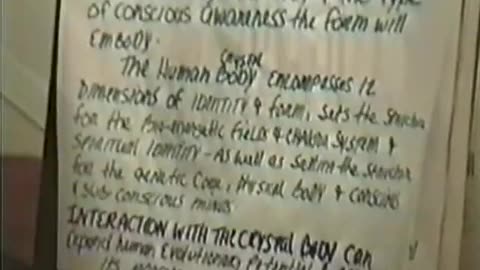 of conscious awareness the form will
EMBODY.
CRYSTAL
The Human BODY ENCOMPASSES 12
DIMENSIONS OF IDENTITY & form, sets the
for the Bio-energetic Fields & CHAKRA SYSTEM &
SPIRITUAL IDENTITY - AS well AS Setting the
for the Genetic Code, Physical BODY &
& SUB CONSCIOUS minds.
INTERACTION WITH THE CRYSTAL BODY CAN
Expand human Evolutionary Potential
its